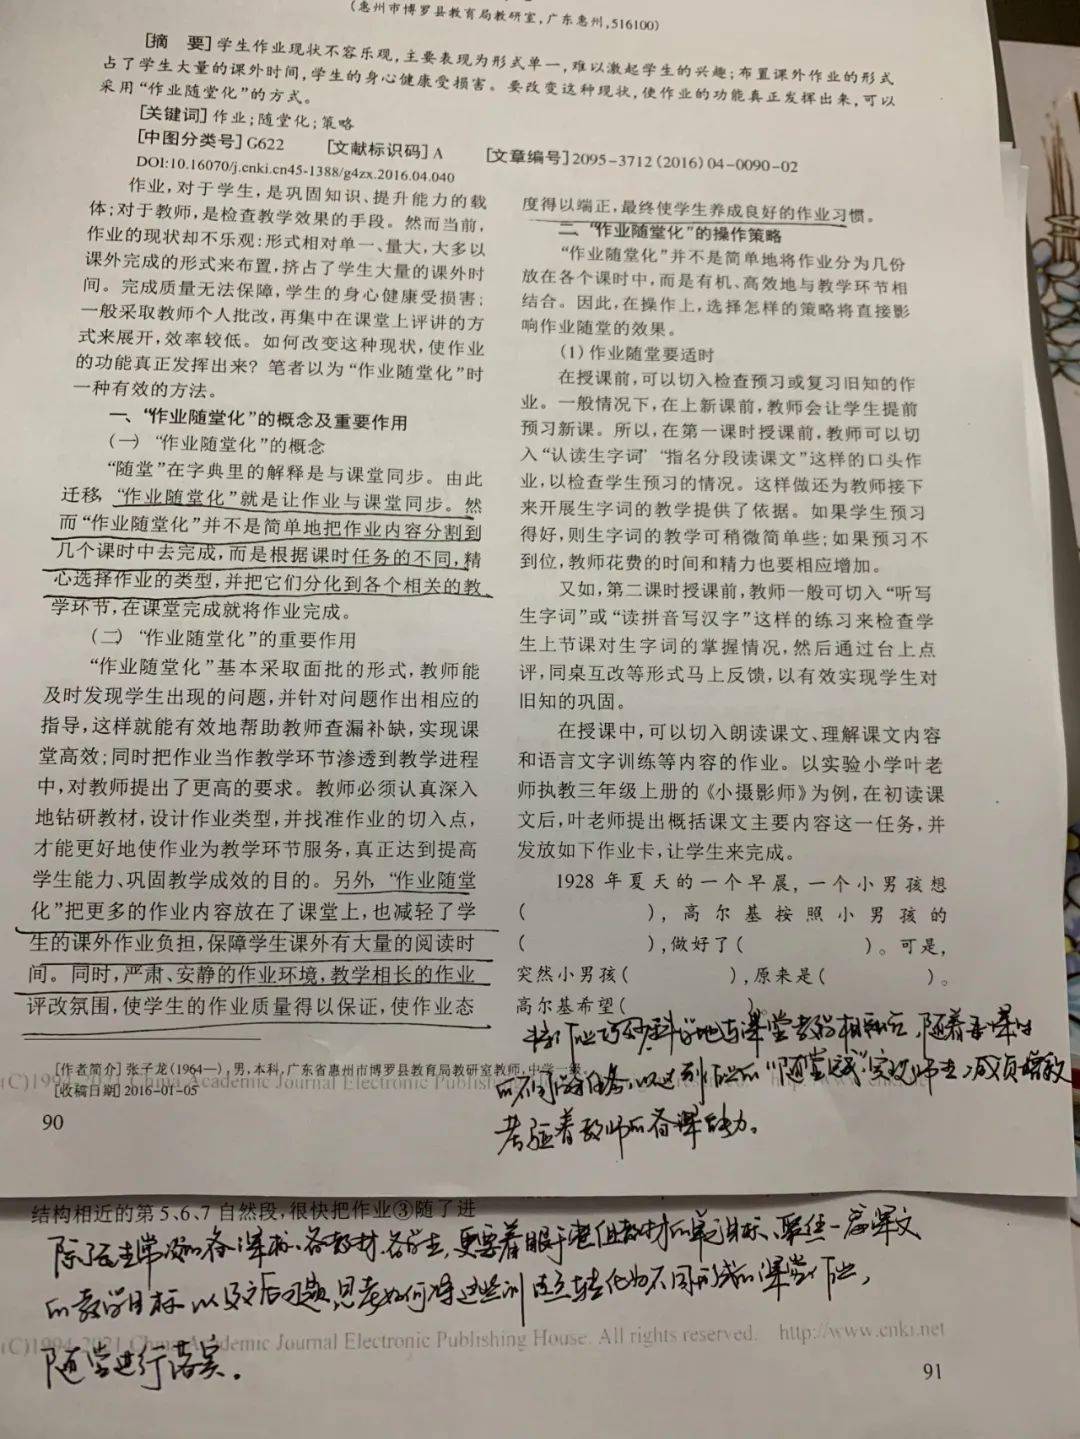 (惠州市博罗县教育局教研室,广东惠州,516100)
[摘 要]学生作业现状不容乐观,主要表现为形式单一,难以激起学生的兴趣;布置课外作业的形式
占了学生大量的课外时间,学生的身心健康受损害。要改变这种现状,使作业的功能真正发挥出来,可以
采用“作业随堂化”的方式。
[关键词]作业;随堂化;策略
[中图分类号]G622 [文献标识码]A [文章编号]2095-3712(2016)04-0090-02
DOI:10.16070/j.cnki.cn45-1388/g4zx.2016.04.040
作业,对于学生,是巩固知识、提升能力的载
体;对于教师,是检查教学效果的手段。然而当前,
作业的现状却不乐观:形式相对单一、量大,大多以
课外完成的形式来布置,挤占了学生大量的课外时
间。完成质量无法保障,学生的身心健康受损害;
一般采取教师个人批改,再集中在课堂上评讲的方
式来展开,效率较低。如何改变这种现状,使作业
的功能真正发挥出来？笔者以为“作业随堂化”时
一种有效的方法。
一、“作业随堂化”的概念及重要作用
(一)“作业随堂化”的概念
“随堂”在字典里的解释是与课堂同步。由此
迁移,“作业随堂化”就是让作业与课堂同步。然
而“作业随堂化”并不是简单地把作业内容分割到
几个课时中去完成,而是根据课时任务的不同,精
心选择作业的类型,并把它们分化到各个相关的教
学环节,在课堂完成就将作业完成。
(二)“作业随堂化”的重要作用
“作业随堂化”基本采取面批的形式,教师能
及时发现学生出现的问题,并针对问题作出相应的
指导,这样就能有效地帮助教师查漏补缺,实现课
堂高效;同时把作业当作教学环节渗透到教学进程
中,对教师提出了更高的要求。教师必须认真深入
地钻研教材,设计作业类型,并找准作业的切入点,
才能更好地使作业为教学环节服务,真正达到提高
学生能力、巩固教学成效的目的。另外,“作业随堂
化”把更多的作业内容放在了课堂上,也减轻了学
生的课外作业负担,保障学生课外有大量的阅读时
间。同时,严肃、安静的作业环境,教学相长的作业
评改氛围,使学生的作业质量得以保证,使作业态
度得以端正,最终使学生养成良好的作业习惯。
二、“作业随堂化”的操作策略
“作业随堂化”并不是简单地将作业分为几份
放在各个课时中,而是有机、高效地与教学环节相
结合。因此,在操作上,选择怎样的策略将直接影
响作业随堂的效果。
(1)作业随堂要适时
在授课前,可以切入检查预习或复习旧知的作
业。一般情况下,在上新课前,教师会让学生提前
预习新课。所以,在第一课时授课前,教师可以切
入“认读生字词”“指名分段读课文”这样的口头作
业,以检查学生预习的情况。这样做还为教师接下
来开展生字词的教学提供了依据。如果学生预习
得好,则生字词的教学可稍微简单些;如果预习不
到位,教师花费的时间和精力也要相应增加。
又如,第二课时授课前,教师一般可切入“听写
生字词”或“读拼音写汉字”这样的练习来检查学
生上节课对生字词的掌握情况,然后通过台上点
评,同桌互改等形式马上反馈,以有效实现学生对
旧知的巩固。
在授课中,可以切入朗读课文、理解课文内容
和语言文字训练等内容的作业。以实验小学叶老
师执教三年级上册的《小摄影师》为例,在初读课
文后,叶老师提出概括课文主要内容这一任务,并
发放如下作业卡,让学生来完成。
1928年夏天的一个早晨,一个小男孩想
( ),高尔基按照小男孩的
( ),做好了( )。可是,
突然小男孩( ),原来是( )。
高尔基希望(
将作业巧妙科学地与课堂教学相融合,随着每课时
的不同学习任务,以达到作业的“随堂
考验着教师的备课能力。
[作者简介]张子龙(1964—),男,本科,广东省惠州市博罗县教育局教研室教师,中学一级。
[收稿日期]2016-01-05
90
结构相近的第5、6、7自然段,很快把作业③随了进
除了平常的备课标、备教材、备学生,更要着眼于整组教材的单元目标、聚焦一篇课文
的教学目标以及文后习题,思考如何将这些训练点转化为不同形式的课堂作业,
(C)1994-2021 China Academic Journal Electronic Publishing House. All rights reserved. http://www.cnki.net
随堂进行落实。
91